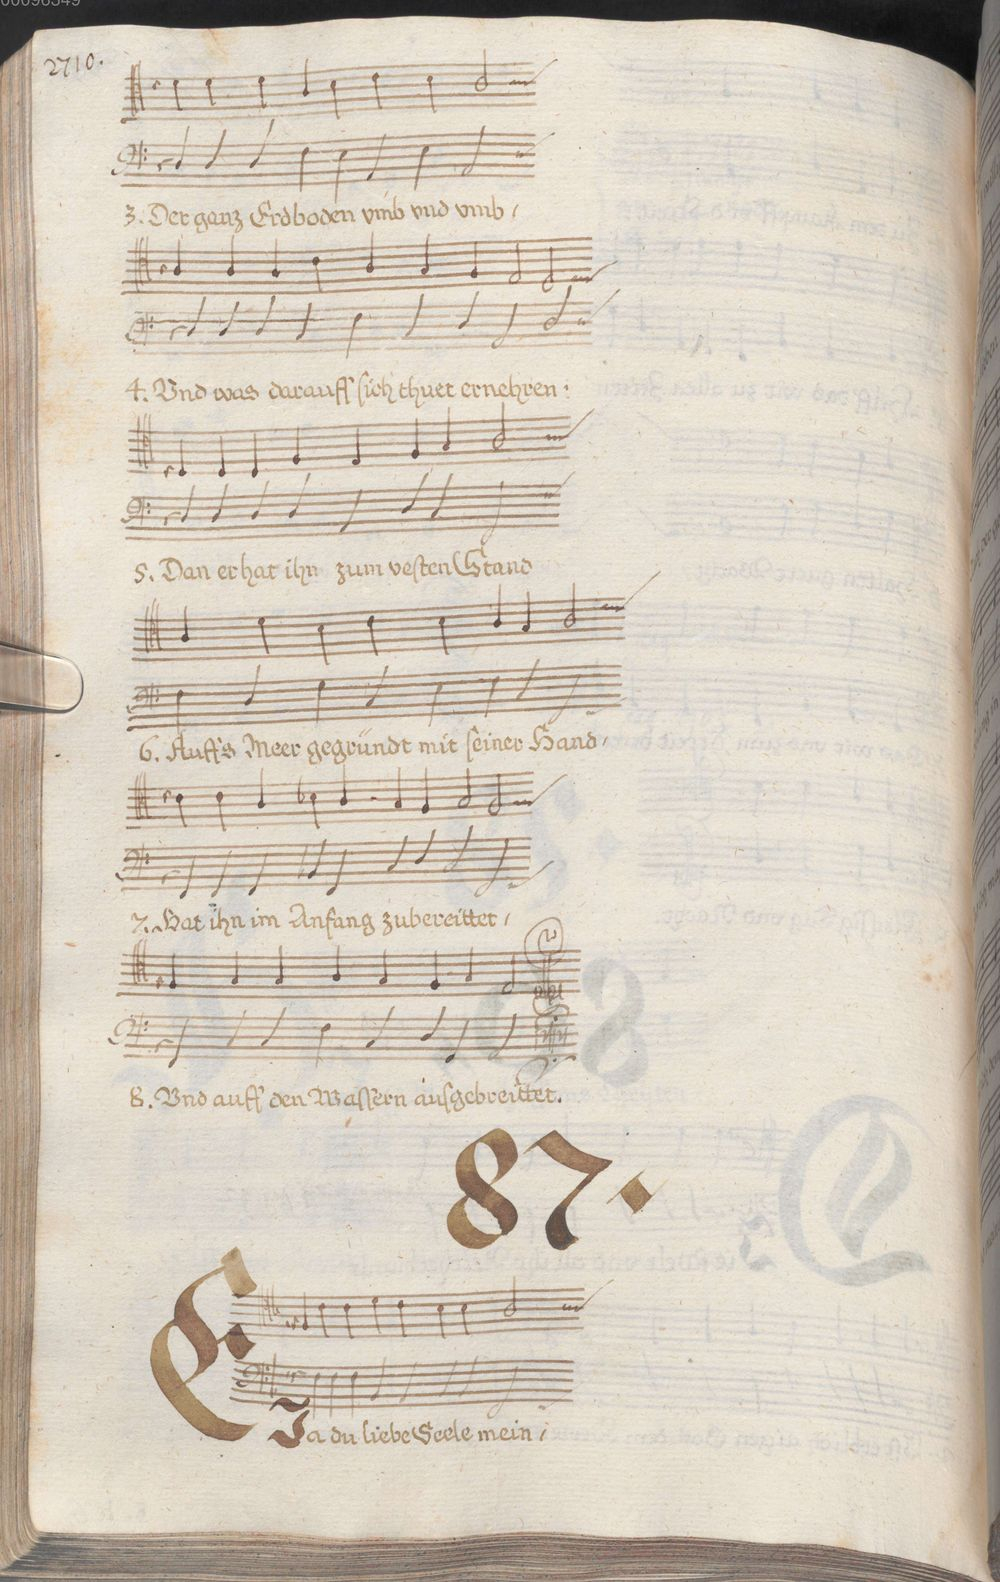 00096349
2710.
3. Der ganz Erdboden vmb vnd vmb /
4. Vnd was darauff sich thuet ernehren :
5. Dan er hat ihn zum vesten Stand
6. Auffs Meer gegründt mit seiner Hand /
7. Hat ihn im Anfang zubereittet /
8. Vnd auff den Wassern ausgebreittet.
87.
EJa du liebe Seele mein /